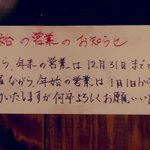 始の営業のお知らせ
ら、年末の営業は12月31日まで
ながら、年始の営業は1月1日から
いたしますが何卒よろしくお願い